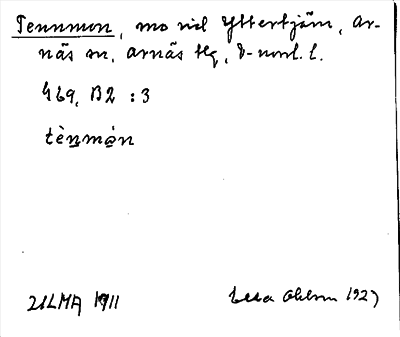 Tennmon, mo vid Yttertjärn, Ar-
näs sn, Arnäs tlg, V-norrl. l.
469, B2 : 3
tènmo̧n
ULMA 1911 Ohlson 1927